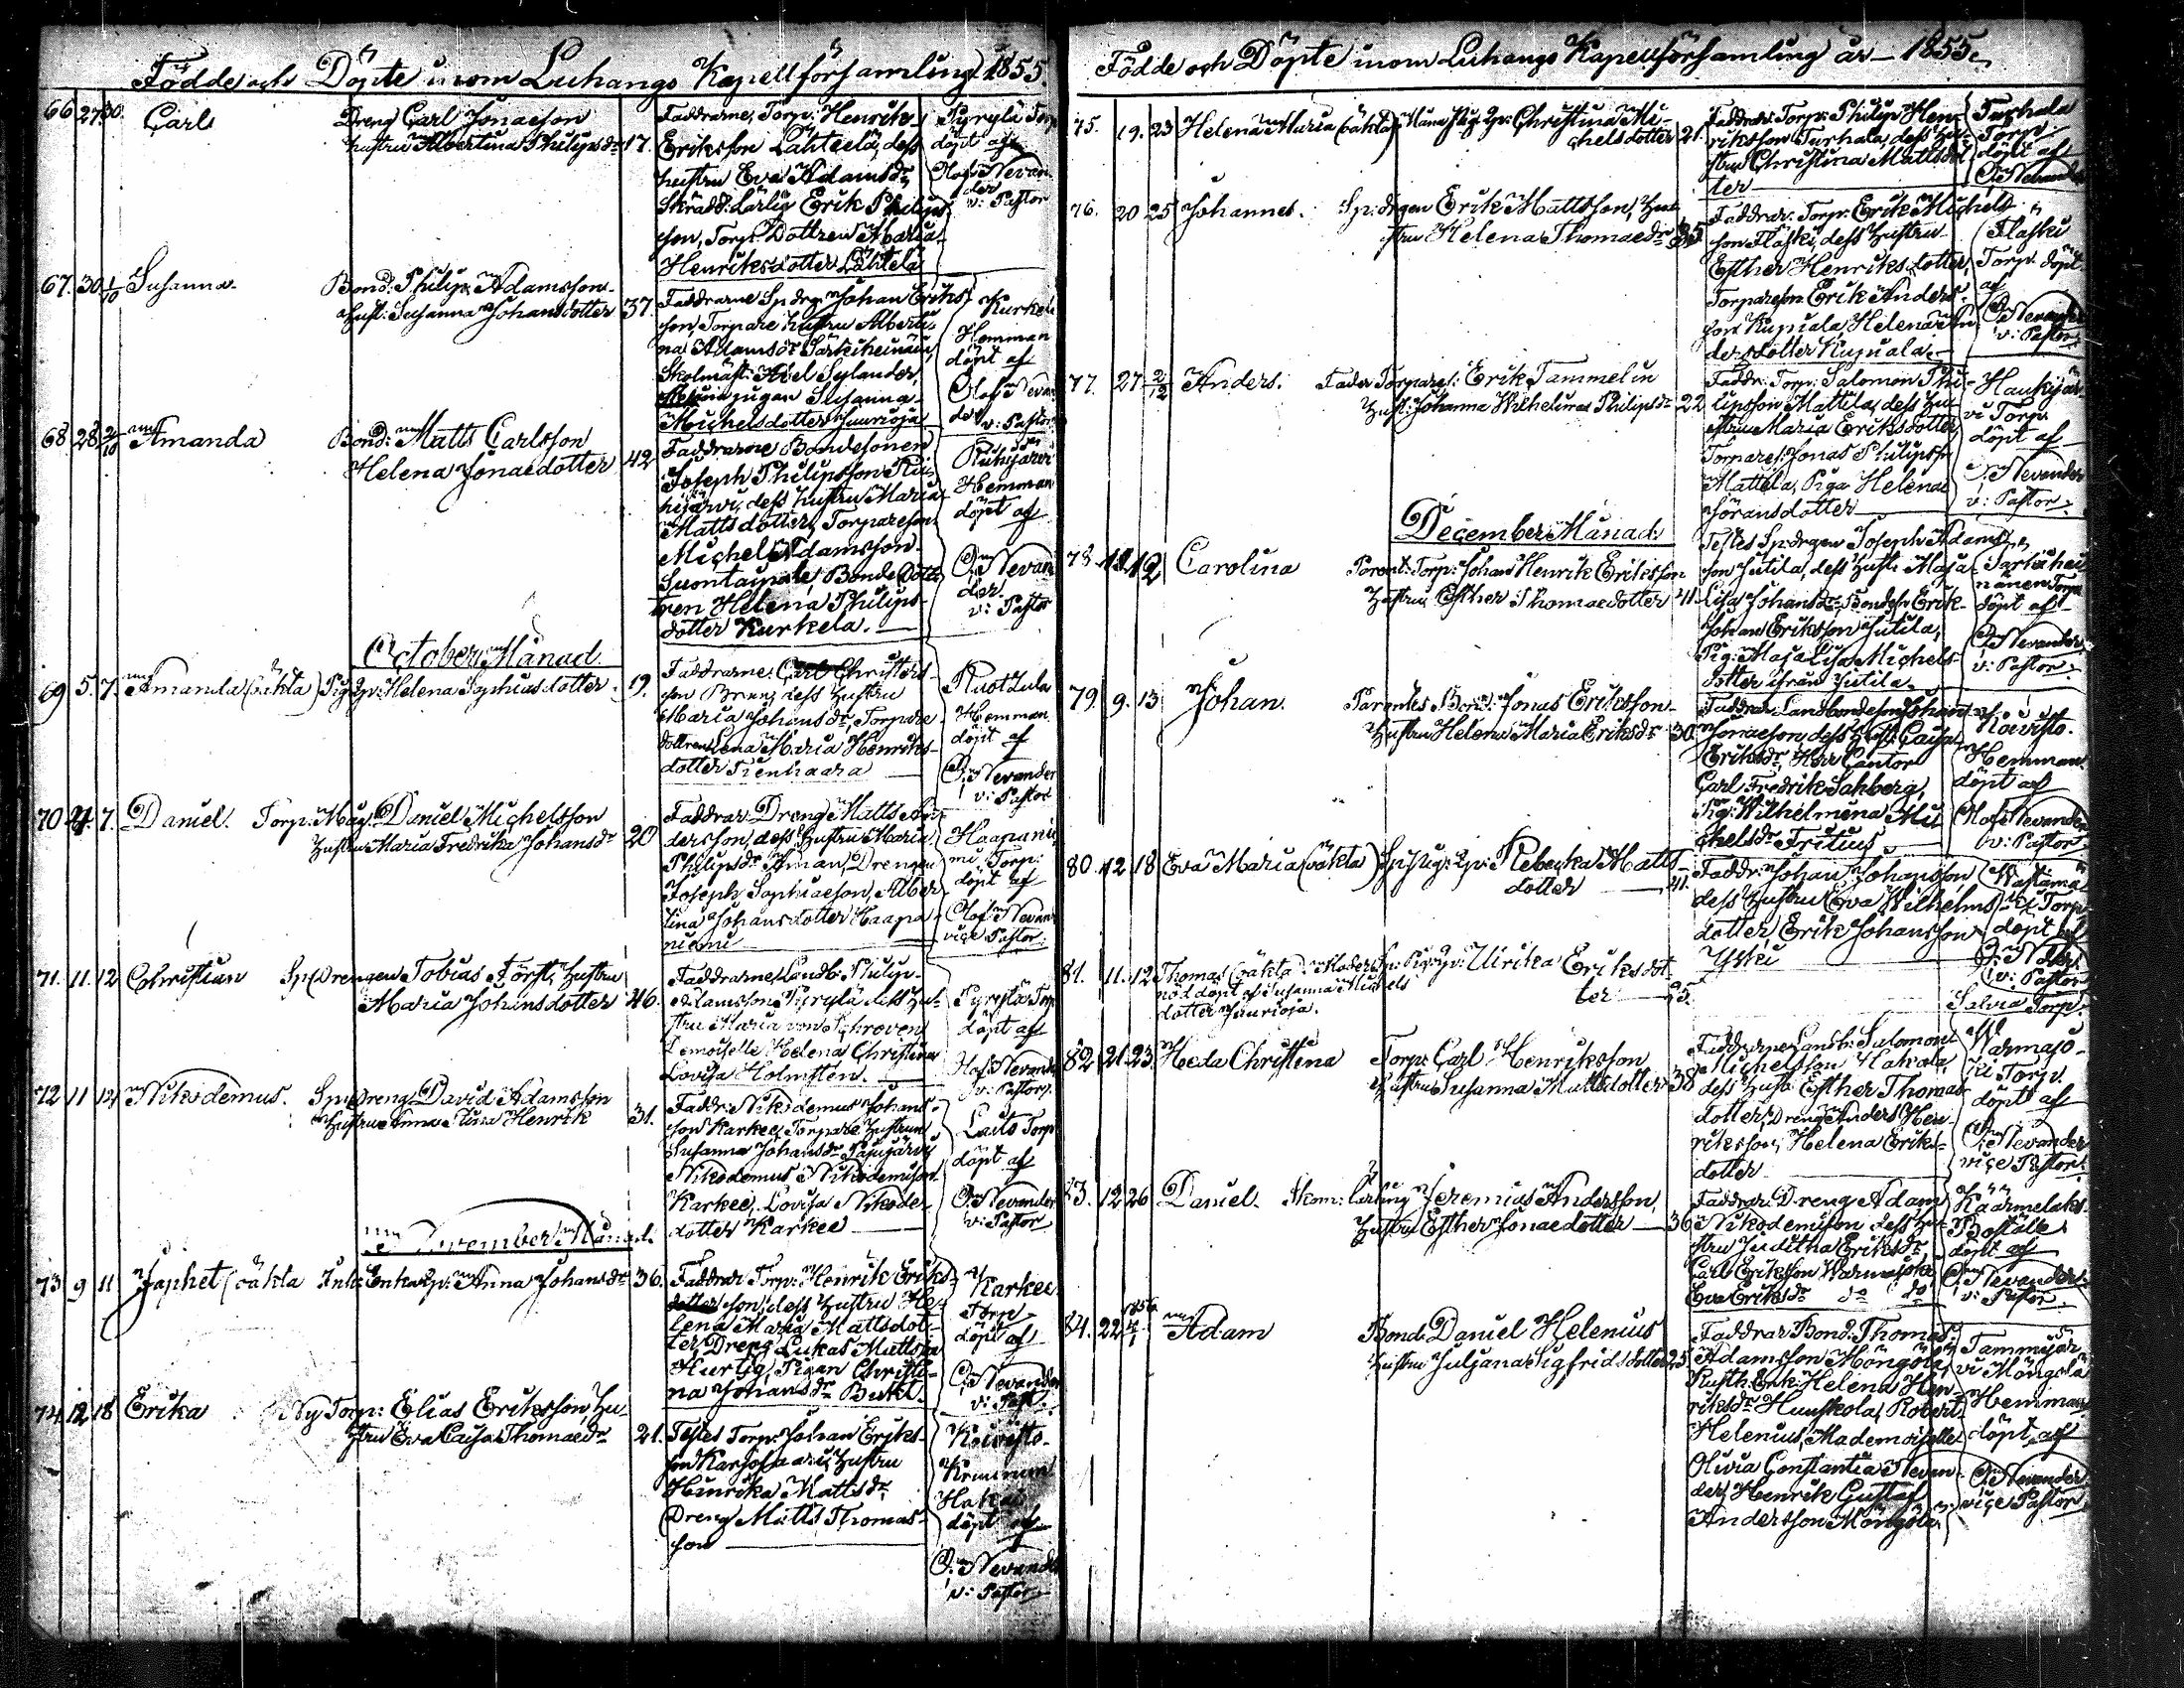 Födde och Döpte inom Luhangs Kapellförsamling 1855.
66 27 30 Carl Dreng Carl Jonaeson
hustru Albertina Philipsdr 17.
Faddrarne, Torp. Henrik
Eriksson Lähteelä, dess
hustru Eva Adamsdr
Skrädd: Lärlig Erik Philips
son, Torp: Dottren Maria
Henriksdotter Lähtelä
Pyrylä Torp
döpt af
Olof Nevan
der
v: Pastor
67. 30 1/10 Susanna Bond: Philip Adamsson
Hust: Susanna Johansdotter 37.
Faddrarne Sp drg: Johan Eriks
son, Torpare hustru Alberti-
na Adamsdr Särkiheinäin
Skolmäst: Abel Sylander,
pigan Susanna
Michelsdotter Juurioja
Kurkela
Hemman
döpt af
Olof Nevan
der v: Pastor
68 28 2/10 Amanda Bond: Matts Carlsson
Helena Jonaedotter 42
Faddrarne Bondesonen
Joseph Philipsson Rii-
hijärvi, dess hustru Maria
Mattsdotter, Torpareson
Michel Adamsson
Suontaipale, Bonde Dott-
ren Helena Philips-
dotter Kurkela.
Riihijärvi
Hemman
döpt af
O. Nevan
der
v: Pastor
October Månad.
69 5. 7. Amanda (oäkta) Pig Qv: Helena Sophiasdotter 19.
Faddrarne: Carl Christers-
son dess hustru
Maria Johansdr, Torpare
dottren Lena Maria Henriks-
dotter Tienhaara
Ruottula
Hemman
döpt af
O. Nevander
v: Pastor
70 4. 7. Daniel. Torp: Mag. Daniel Michelsson
hustru Maria Fredrika Johansdr 20
Faddrar Dreng Matts An-
dersson, dess hustru Maria
Philipsdr Åman, Drengen
Joseph Sophiaeson, Alber-
tina Johansdotter Haapa-
niemi
Haapanie
mi Torp:
döpt af
Olof Nevan
vice Pastor.
71. 11. 12 Christian Sp: Drengen Tobias Först, hustru
Maria Johansdotter 46.
Faddrarne, Landb: Philip
Adamsson Pyrylä dess hu-
stru Maria von Schroven
Demoiselle Helena Christina
Lovisa Holmsten.
Pyrylä Torp
döpt af
Olof Nevander
v: Pastor.
72 11 12 Nikodemus. Sp: Dreng David Adamsson
hustru Anna Stina Henrik 31.
Faddr: Nikodemus Johans-
son Karkee, Torpare hustrun
Susanna Johansdr
Nikodemus Nikodemusson
Karkee, Lovisa Nikode-
dotter Karkee
Laito Torp
döpt af
O. Nevander
v: Pastor
November Månad.
73 9 11 Japhet (oäkta Enka Qv: Anna Johansdr 36.
Faddrar Torp: Henrik Eriks-
son, dess hustru He-
lena Maria Mattsdot-
ter, Dreng Lukas Mattsson
Hurtig, Pigan Christi-
na Johansdr Bukt.
Karkee
Torp
döpt af
O. Nevander
v: Past.
74 12 18 Erika Ny Torp: Elias Eriksson, Hu-
stru Eva Caisa Thomaedr 21.
Testes Torp: Johan Eriks-
son Karjosaari, hustru
Henrika Mattsdr,
Dreng Matts Thomas-
son
Koivisto
Hemman
döpt af
O. Nevander
v: Pastor
Födde och Döpte inom Luhangs Kapellförsamling år 1855.
75. 19. 23 Helena Maria (oäkta) Qv: Christina Mi-
chelsdotter 21.
Faddrar: Torp: Philip Hen-
riksson Turhala, dess hu-
stru Christina Mattsdot
ter
Turhala
Torp.
döpt af
O. Nevander
76. 20 25 Johannes. Sp: drgen Erik Mattsson, hu-
stru Helena Thomaedr 35
Faddrar: Torp: Erik Michels-
son Flaski, dess hustru
Esther Henriksdotter,
Torpareson Erik Anders-
son Kupiala, Helena An-
dersdotter Kupiala.
Flaski
Torp. döpt
af
O. Nevander
v: Pastor
77. 27 2/12 Anders. Fader Torpares: Erik Tammelin
Hust: Johanna Wilhelmina Philipsdr 22
Faddr: Torp: Salomon Phi-
lipsson Mattila, dess hu-
stru Maria Eriksdotter,
Torpares: Jonas Philipsson
Mattila, Piga Helena
Göransdotter
Haukijär
vi Torp.
döpt af
O. Nevander
v: Pastor
December Månad.
78. 12 Carolina Parent: Torp: Johan Henrik Eriksson
hustru Esther Thomaedotter 41.
Testes Sp: drgen Joseph Adams-
son Jutila, dess hust: Maja
Lisa Johansdr Bondesn Erik
Johan Eriksson Jutila,
Pig: Maja Lisa Michels-
dotter ifrån Jutila.
Särkihei
nänen Torp
döpt af
O. Nevander
v: Pastor
79. 9. 13 Johan. Parentes Bond: Jonas Eriksson
Hustru Helena Maria Eriksdr 30
Faddrar: Landbondeson Johan
Jonaeson, dess hust: Caisa
Eriksdr, Herr Cantor
Carl Fredrik Sahberg,
Pig: Wilhelmina Mi-
chelsdr Fritius
Koivisto
Hemman
döpt af
Olof Nevander
v: Pastor
80. 12 18 Eva Maria (oäkta) Sp: pig: Qv: Rebecka Matts-
dotter 41.
Faddr: Johan Johansson,
dess hustru Eva Wilhelms-
dotter Erik Johansson
Yskii
Torp
döpt af
O. Ndr
v: Pastor
81. 11. 12 Thomas (oäkta) Moder Sp: Pig: Qv: Ulrika Eriksdot-
ter 25.
nöddöpt af Susanna Michels
dotter Juurioja.
Salvia Torp.
82 21. 23. Heda Christina Torp: Carl Henriksson
Hustru Susanna Mattsdotter 38
Faddrarne Landb: Salomon
Michelsson Hakola,
dess hust: Esther Thomas-
dotter, Dreng Anders Hen-
riksson, Helena Eriks-
dotter
Warmajo-
ki Torp.
döpt af
O. Nevander
vice Pastor.
83. 12 26 Daniel. Skom: Lärling Jeremias Andersson,
hustru Esther Jonaedotter 36
Faddrar: Dreng Adam
Nikodemusson dess hu-
stru Juditha Eriksdr,
Carl Eriksson Warmajoki
Eva Eriksdr do do
Käärmelaks
Boställe
döpt af
O. Nevander
v: Pastor.
84. 22 1856 4/1 Adam Bond: Daniel Helenius
Hustru Juljana Sigfridsdotter 25
Faddrar Bond: Thomas
Adamsson Möngölä,
Rusth: Enk: Helena Hen-
riksdr Hunskola, Robert
Helenius, Mademoiselle
Olivia Constantia Nevan-
der, Henrik Gustaf
Andersson Möngölä
Tammijär
vi Möngölä
Hemman
döpt af
O. Nevander
vice Pastor